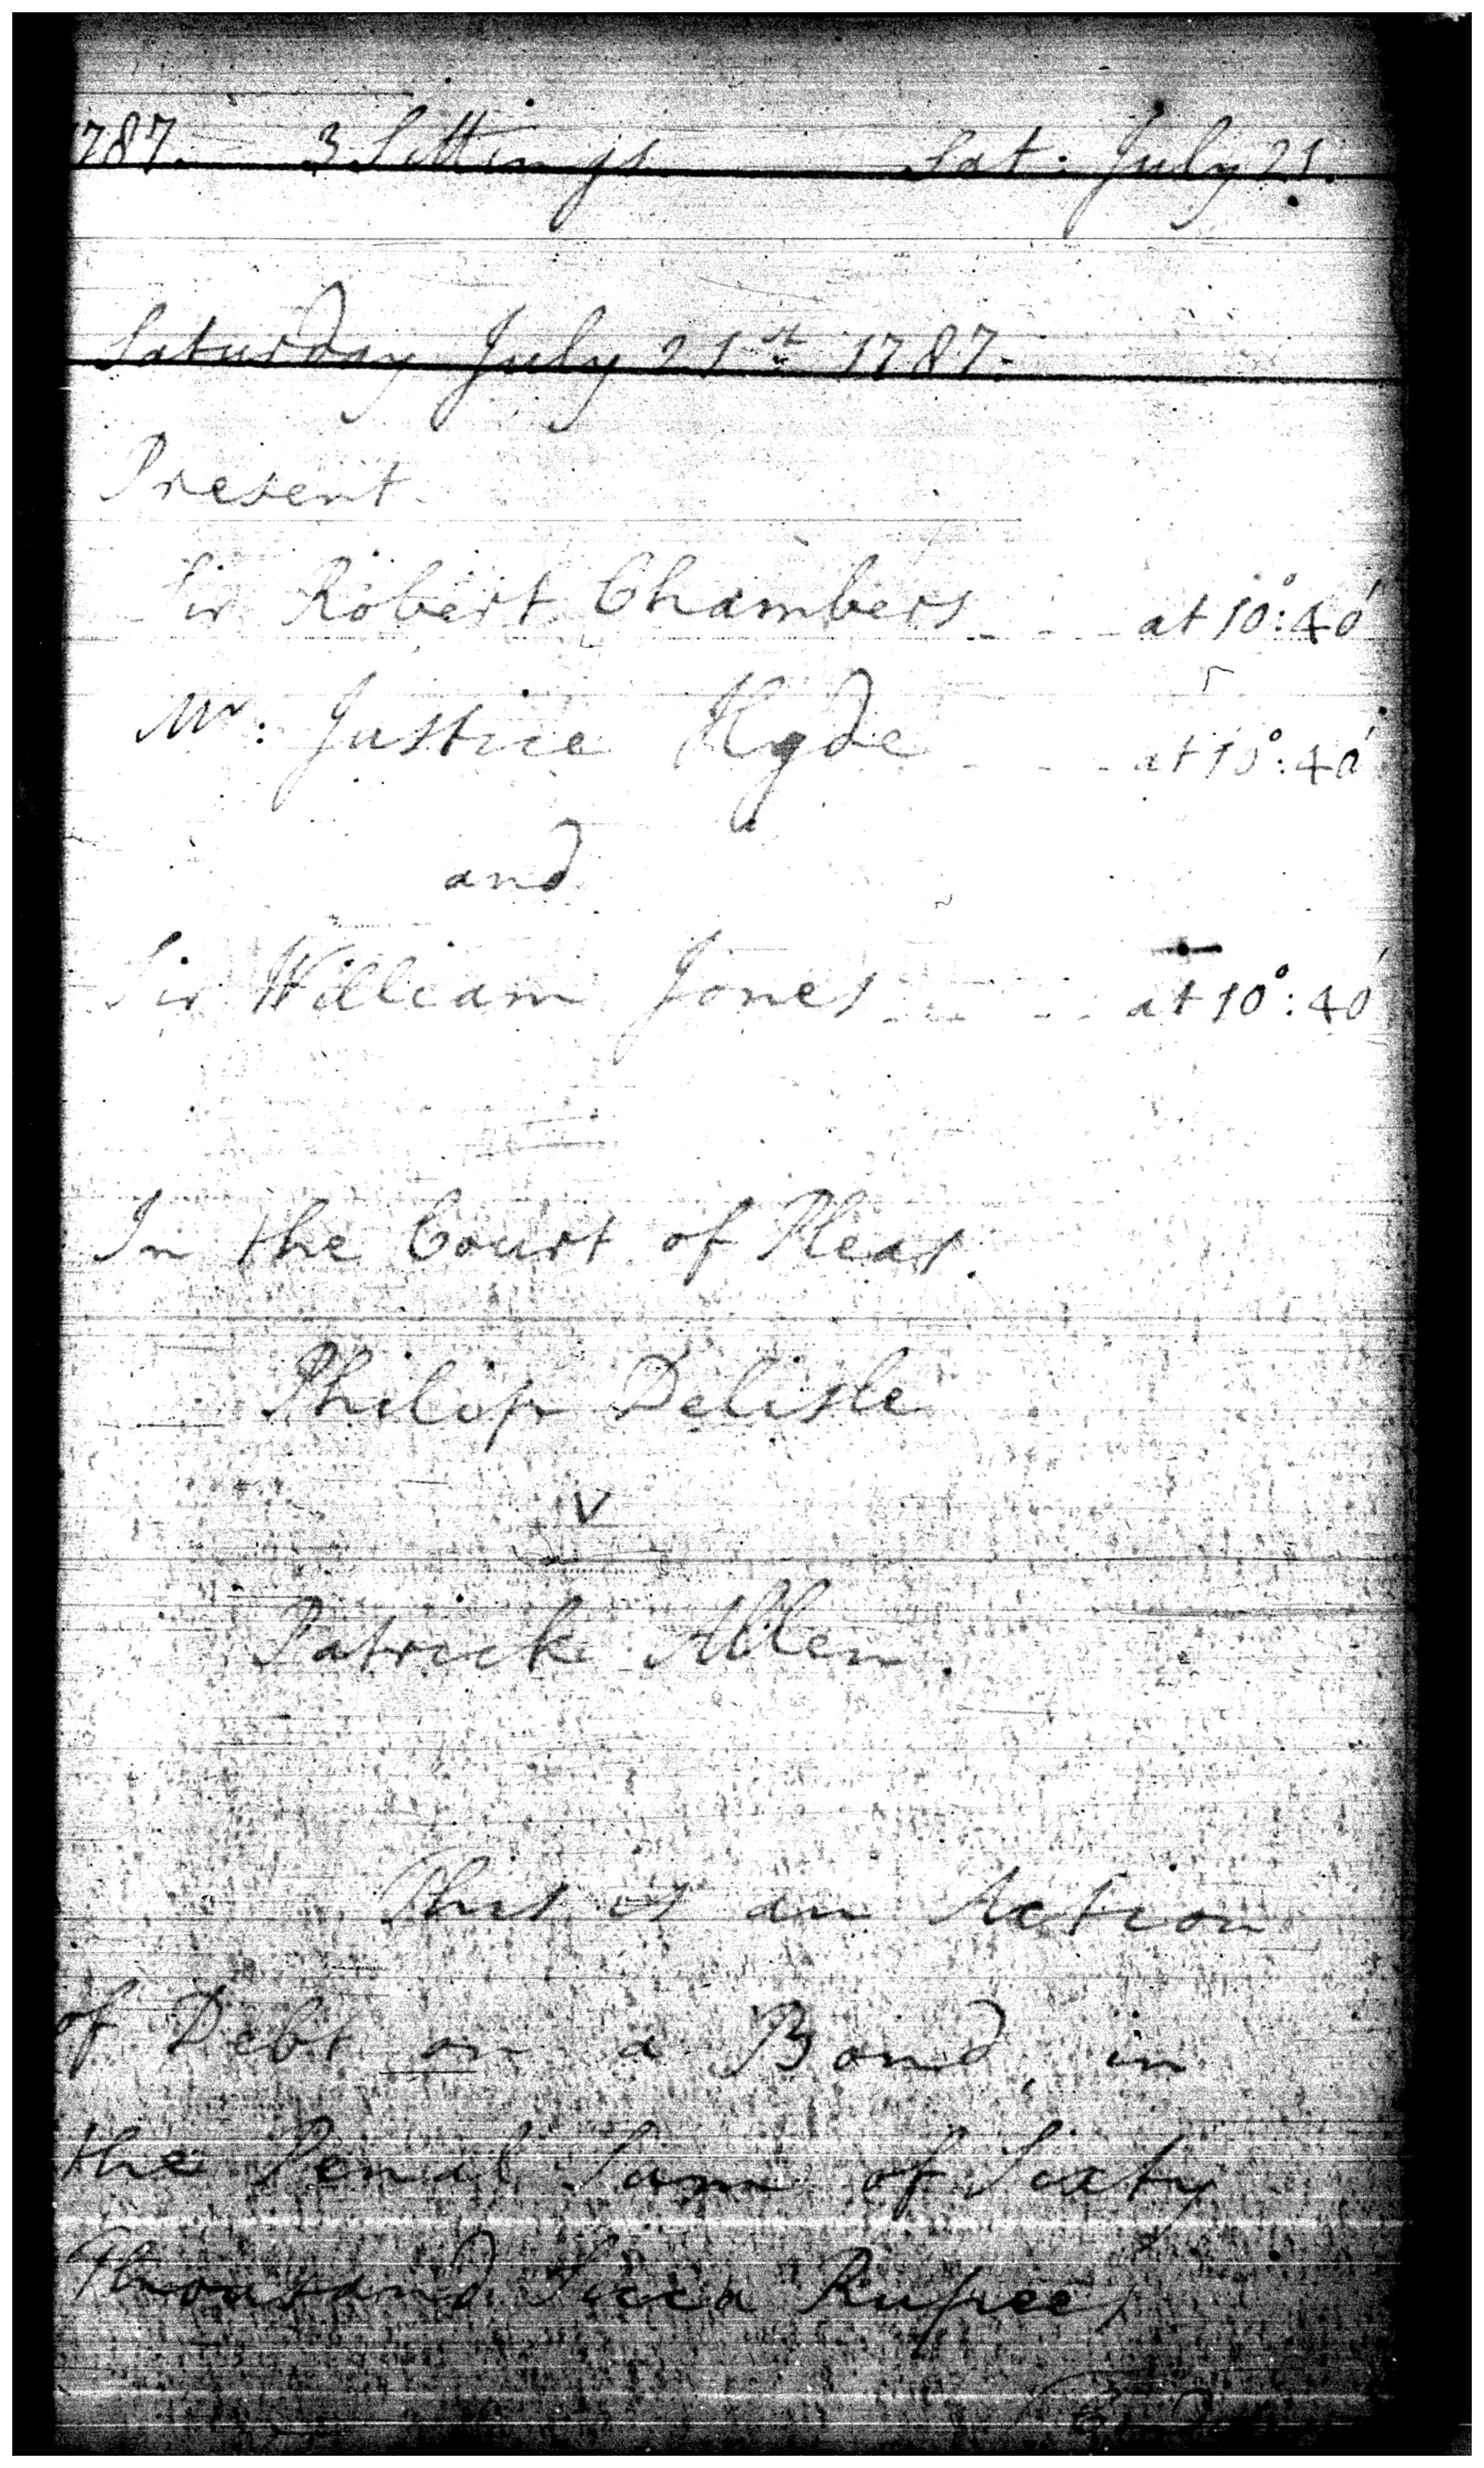 1787. 3 Sittings. Sat: July 21.
Saturday July 21st 1787.
Present.
Sir Robert Chambers at 10°:40'
Mr: Justice Hyde at 10°:40'
and
Sir William Jones at 10°:40'
In the Court of Pleas.
Philip Delisle
v
Patrick Allen.
This is an Action
of Debt on a Bond, in
the Penal Sum of Sixty
Thousand Sicca Rupees